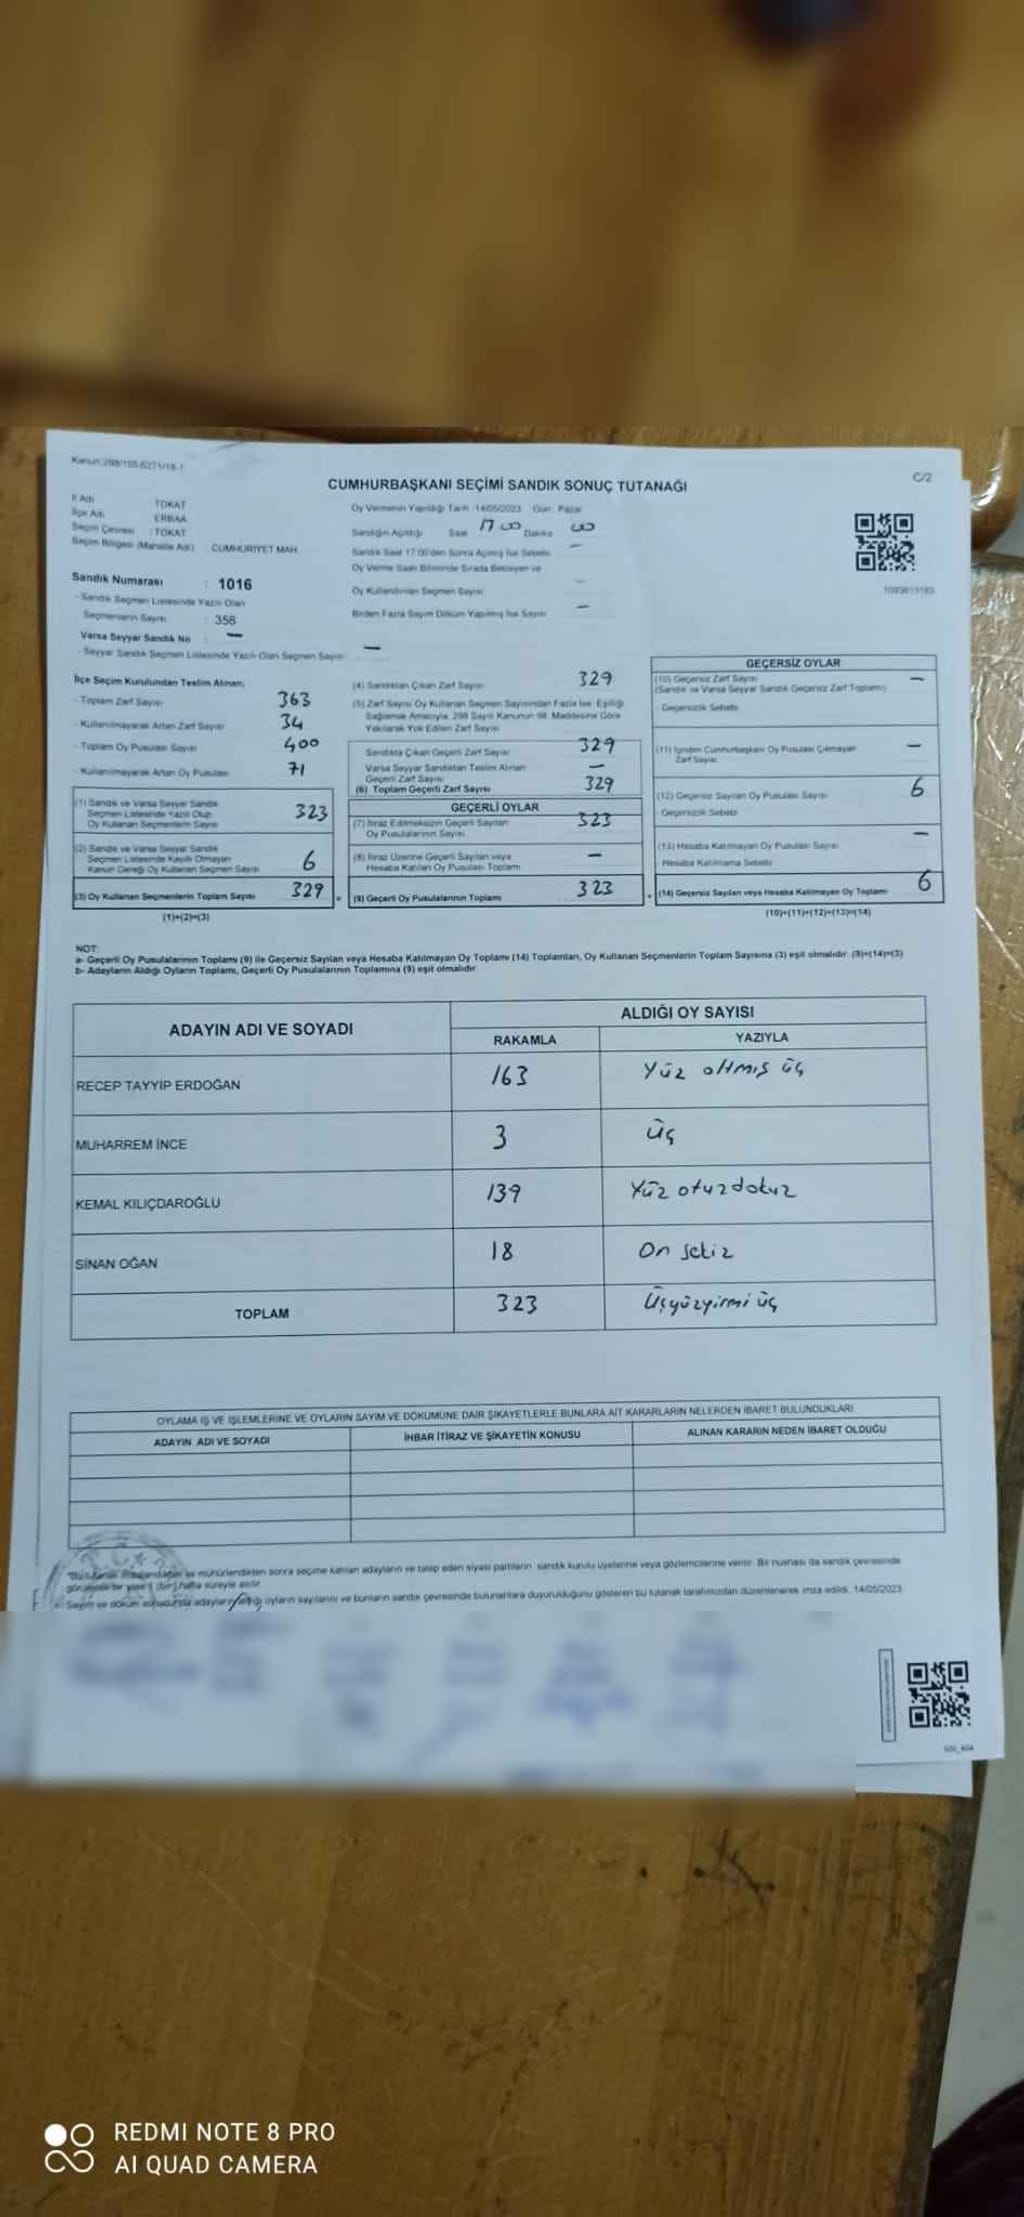 Kanun:298/105 6271/18-1
C/2
CUMHURBAŞKANI SEÇİMİ SANDIK SONUÇ TUTANAĞI
İl Adı TOKAT
İlçe Adı ERBAA
Seçim Çevresi : TOKAT
Seçim Bölgesi (Mahalle Adı) CUMHURİYET MAH.
Sandık Numarası : 1016
- Sandık Seçmen Listesinde Yazılı Olan
Seçmenlerin Sayısı : 356
Varsa Seyyar Sandık No : —
- Seyyar Sandık Seçmen Listesinde Yazılı Olan Seçmen Sayısı —
Oy Vermenin Yapıldığı Tarih :14/05/2023 Gün: Pazar
Sandığın Açıldığı Saat 17 00 Dakika 00
Sandık Saat 17:00'den Sonra Açılmış İse Sebebi —
Oy Verme Saati Bitiminde Sırada Bekleyen ve
Oy Kullandırılan Seçmen Sayısı —
Birden Fazla Sayım Döküm Yapılmış İse Sayısı —
1093613183
İlçe Seçim Kurulundan Teslim Alınan;
- Toplam Zarf Sayısı 363
- Kullanılmayarak Artan Zarf Sayısı 34
- Toplam Oy Pusulası Sayısı 400
- Kullanılmayarak Artan Oy Pusulası 71
(1) Sandık ve Varsa Seyyar Sandık
Seçmen Listesinde Yazılı Olup
Oy Kullanan Seçmenlerin Sayısı 323
(2) Sandık ve Varsa Seyyar Sandık
Seçmen Listesinde Kayıtlı Olmayan
Kanun Gereği Oy Kullanan Seçmen Sayısı 6
(3) Oy Kullanan Seçmenlerin Toplam Sayısı 329
(1)+(2)=(3)
(4) Sandıktan Çıkan Zarf Sayısı 329
(5) Zarf Sayısı Oy Kullanan Seçmen Sayısından Fazla İse, Eşitliği
Sağlamak Amacıyla, 298 Sayılı Kanunun 98. Maddesine Göre
Yakılarak Yok Edilen Zarf Sayısı
Sandıkta Çıkan Geçerli Zarf Sayısı 329
Varsa Seyyar Sandıktan Teslim Alınan
Geçerli Zarf Sayısı —
(6) Toplam Geçerli Zarf Sayısı 329
GEÇERLİ OYLAR
(7) İtiraz Edilmeksizin Geçerli Sayılan
Oy Pusulalarının Sayısı 323
(8) İtiraz Üzerine Geçerli Sayılan veya
Hesaba Katılan Oy Pusulası Toplamı —
= (9) Geçerli Oy Pusulalarının Toplamı 323
GEÇERSİZ OYLAR
(10) Geçersiz Zarf Sayısı —
(Sandık ve Varsa Seyyar Sandık Geçersiz Zarf Toplamı)
- Geçersizlik Sebebi
(11) İçinden Cumhurbaşkanı Oy Pusulası Çıkmayan
Zarf Sayısı —
(12) Geçersiz Sayılan Oy Pusulası Sayısı 6
- Geçersizlik Sebebi
(13) Hesaba Katılmayan Oy Pusulası Sayısı —
- Hesaba Katılmama Sebebi
+ (14) Geçersiz Sayılan veya Hesaba Katılmayan Oy Toplamı 6
(10)+(11)+(12)+(13)=(14)
NOT:
a- Geçerli Oy Pusulalarının Toplamı (9) ile Geçersiz Sayılan veya Hesaba Katılmayan Oy Toplamı (14) Toplamları, Oy Kullanan Seçmenlerin Toplam Sayısına (3) eşit olmalıdır. (9)+(14)=(3)
b- Adayların Aldığı Oyların Toplamı, Geçerli Oy Pusulalarının Toplamına (9) eşit olmalıdır.
ADAYIN ADI VE SOYADI ALDIĞI OY SAYISI
RAKAMLA YAZIYLA
RECEP TAYYİP ERDOĞAN 163 Yüz altmış üç
MUHARREM İNCE 3 üç
KEMAL KILIÇDAROĞLU 139 Yüz otuzdokuz
SİNAN OĞAN 18 On sekiz
TOPLAM 323 Üçyüzyirmi üç
OYLAMA İŞ VE İŞLEMLERİNE VE OYLARIN SAYIM VE DÖKÜMÜNE DAİR ŞİKAYETLERLE BUNLARA AİT KARARLARIN NELERDEN İBARET BULUNDUKLARI
ADAYIN ADI VE SOYADI İHBAR İTİRAZ VE ŞİKAYETİN KONUSU ALINAN KARARIN NEDEN İBARET OLDUĞU
T.C.
*Bu tutanak imzalandıktan ve mühürlendikten sonra seçime katılan adayların ve talep eden siyasi partilerin sandık kurulu üyelerine veya gözlemcilerine verilir. Bir nüshası da sandık çevresinde
görülecek bir yere 1 (bir) hafta süreyle asılır.
Sayım ve döküm sonucunda adayların aldığı oyların sayılarını ve bunların sandık çevresinde bulunanlara duyurulduğunu gösteren bu tutanak tarafımızdan düzenlenerek imza edildi. 14/05/2023
REDMI NOTE 8 PRO
AI QUAD CAMERA